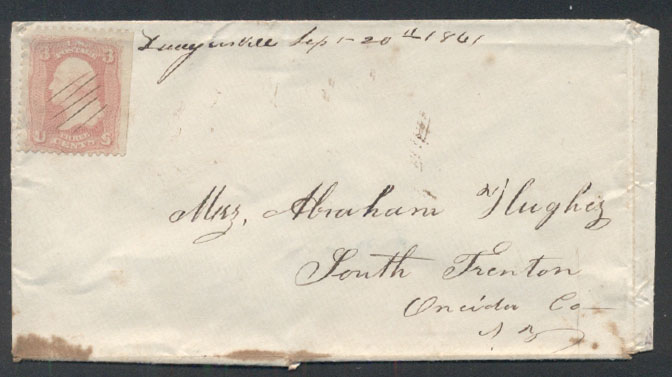 Sept 20th 1861
3 3
U S
Mrs. Abraham Hughes
South Trenton
Oneida Co
N Y